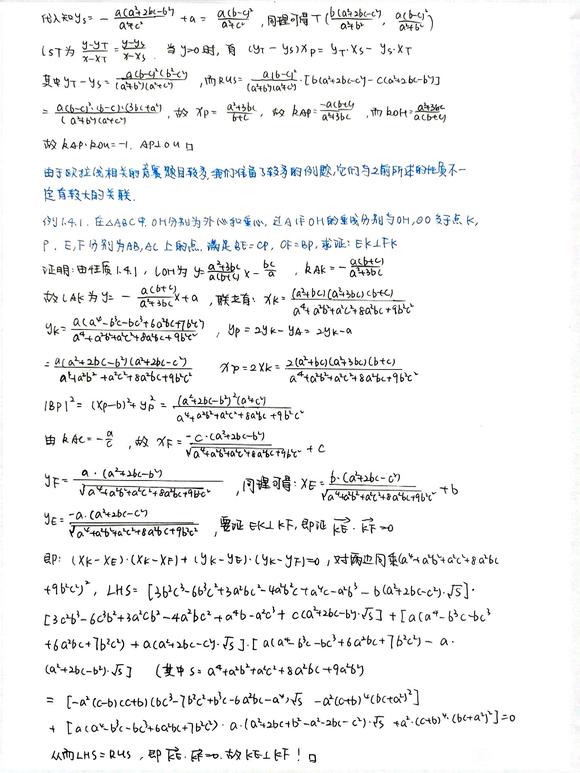 代入知 y_S = -a(a²+2bc-b²)/(a²+c²) + a = a(b-c)²/(a²+c²), 同理可得 T(b(a²+2bc-c²)/(a²+b²), a(b-c)²/(a²+b²))
LST为 (y-y_T)/(x-x_T) = (y-y_S)/(x-x_S). 当 y=0时, 有 (y_T-y_S)x_P = y_T·x_S - y_S·x_T
其中 y_T-y_S = a(b-c)²(b²-c²)/((a²+b²)(a²+c²)), 而RHS = a(b-c)²/((a²+b²)(a²+c²))·[b(a²+2bc-c²)-c(a²+2bc-b²)]
= a(b-c)²·(b-c)·(3bc+a²)/((a²+b²)(a²+c²)), 故 x_P = (a²+3bc)/(b+c), 故 k_AP = -a(b+c)/(a²+3bc), 而 k_OH = (a²+3bc)/(a(b+c))
故 k_AP·k_OH = -1, AP⊥OH □
由于欧拉线相关的竞赛题目较多,我们保留了较多的例题,它们与之前所述的性质不一
定有较大的关联.
例1.4.1. 在△ABC中, O,H分别为外心和垂心, 过A作OH的垂线分别与OH,⊙O交于点K,
P. E,F分别为AB,AC上的点, 满足BE=CP, CF=BP, 求证: EK⊥FK
证明: 由性质1.4.1, LOH为 y = (a²+3bc)/(a(b+c)) x - bc/a, k_AK = -a(b+c)/(a²+3bc)
故LAK为 y = -a(b+c)/(a²+3bc) x + a, 联立有: x_K = (a²+bc)(a²+3bc)(b+c)/(a⁴+a²b²+a²c²+8a²bc+9b²c²)
y_K = a(a⁴-b³c-bc³+6a²bc+7b²c²)/(a⁴+a²b²+a²c²+8a²bc+9b²c²), y_P = 2y_K-y_A = 2y_K-a
= a(a²+2bc-b²)(a²+2bc-c²)/(a⁴+a²b²+a²c²+8a²bc+9b²c²) x_P = 2x_K = 2(a²+bc)(a²+3bc)(b+c)/(a⁴+a²b²+a²c²+8a²bc+9b²c²)
|BP|² = (x_P-b)²+y_P² = (a²+2bc-b²)²(a²+c²)/(a⁴+a²b²+a²c²+8a²bc+9b²c²)
由 k_AC = -a/c, 故 x_F = -c·(a²+2bc-b²)/√(a⁴+a²b²+a²c²+8a²bc+9b²c²) + c
y_F = a·(a²+2bc-b²)/√(a⁴+a²b²+a²c²+8a²bc+9b²c²), 同理可得: x_E = b·(a²+2bc-c²)/√(a⁴+a²b²+a²c²+8a²bc+9b²c²) + b
y_E = -a·(a²+2bc-c²)/√(a⁴+a²b²+a²c²+8a²bc+9b²c²), 要证EK⊥KF, 即证 KE·KF=0
即: (x_K-x_E)·(x_K-x_F)+(y_K-y_E)·(y_K-y_F)=0, 对两边同乘(a⁴+a²b²+a²c²+8a²bc
+9b²c²)², LHS = [3b²c³-6b³c²+3a²bc²-4a²b²c+a⁴c-a²b³-b(a²+2bc-c²)·√S]·
[3c²b³-6c³b²+3a²cb²-4a²bc²+a⁴b-a²c³+c(a²+2bc-b²)·√S]+[a(a⁴-b³c-bc³
+6a²bc+7b²c²)+a(a²+2bc-c²)·√S]·[a(a⁴-b³c-bc³+6a²bc+7b²c²)-a·
(a²+2bc-b²)·√S] (其中S=a⁴+a²b²+a²c²+8a²bc+9a²b²)
= [-a²(c-b)(c+b)(bc³-7b²c²+b³c-6a²bc-a⁴)√S -a²(c+b)⁴(bc+a²)²]
+ [a(a⁴-b³c-bc³+6a²bc+7b²c²)·a·(a²+2bc+b²-a²-2bc-c²)·√S+a²·(c+b)⁴·(bc+a²)²]=0
从而LHS=RHS, 即 KE·KF=0. 故KE⊥KF! □